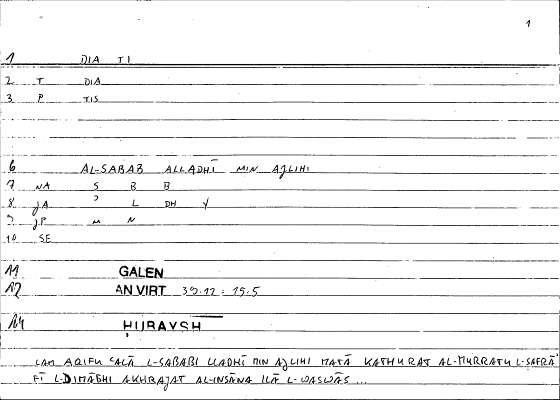 1
1 DIA TI
2 T DIA
3 P TIS
6 AL-SABAB ALLADHĪ MIN AJLIHI
7 NA S B B
8 JA ʾ L DH Y
9 JP M N
10 SE
11 GALEN
12 AN VIRT 39.12 : 15.5
14 ḤUBAYSH
LAM AQIFU ʿALĀ L-SABABI LLADHĪ MIN AJLIHI MATĀ KATHURAT AL-MURRATU L-SAFRĀʾ
FĪ L-DIMĀGHI AKHRAJAT AL-INSĀNA ILĀ L-WASWĀS ...